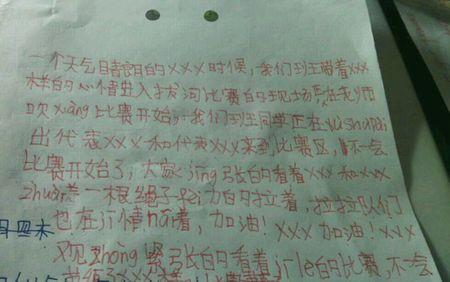 一个天气晴朗的XXX时候，我们班王带着XXX
样的心情进入拔河比赛的现场，在老师
吹xiàng比赛开始，我们班同学正在
出代表XXX和代表XXX来到比赛区，不一会
比赛开始了，大家jǐng张的看着XXX和XXX
zhuài着一根绳子fèi力的拉着，拉拉队们
也在jī情nà着，加油！XXX加油！XXX
观zhòng紧张的看着jī le的比赛，不一会